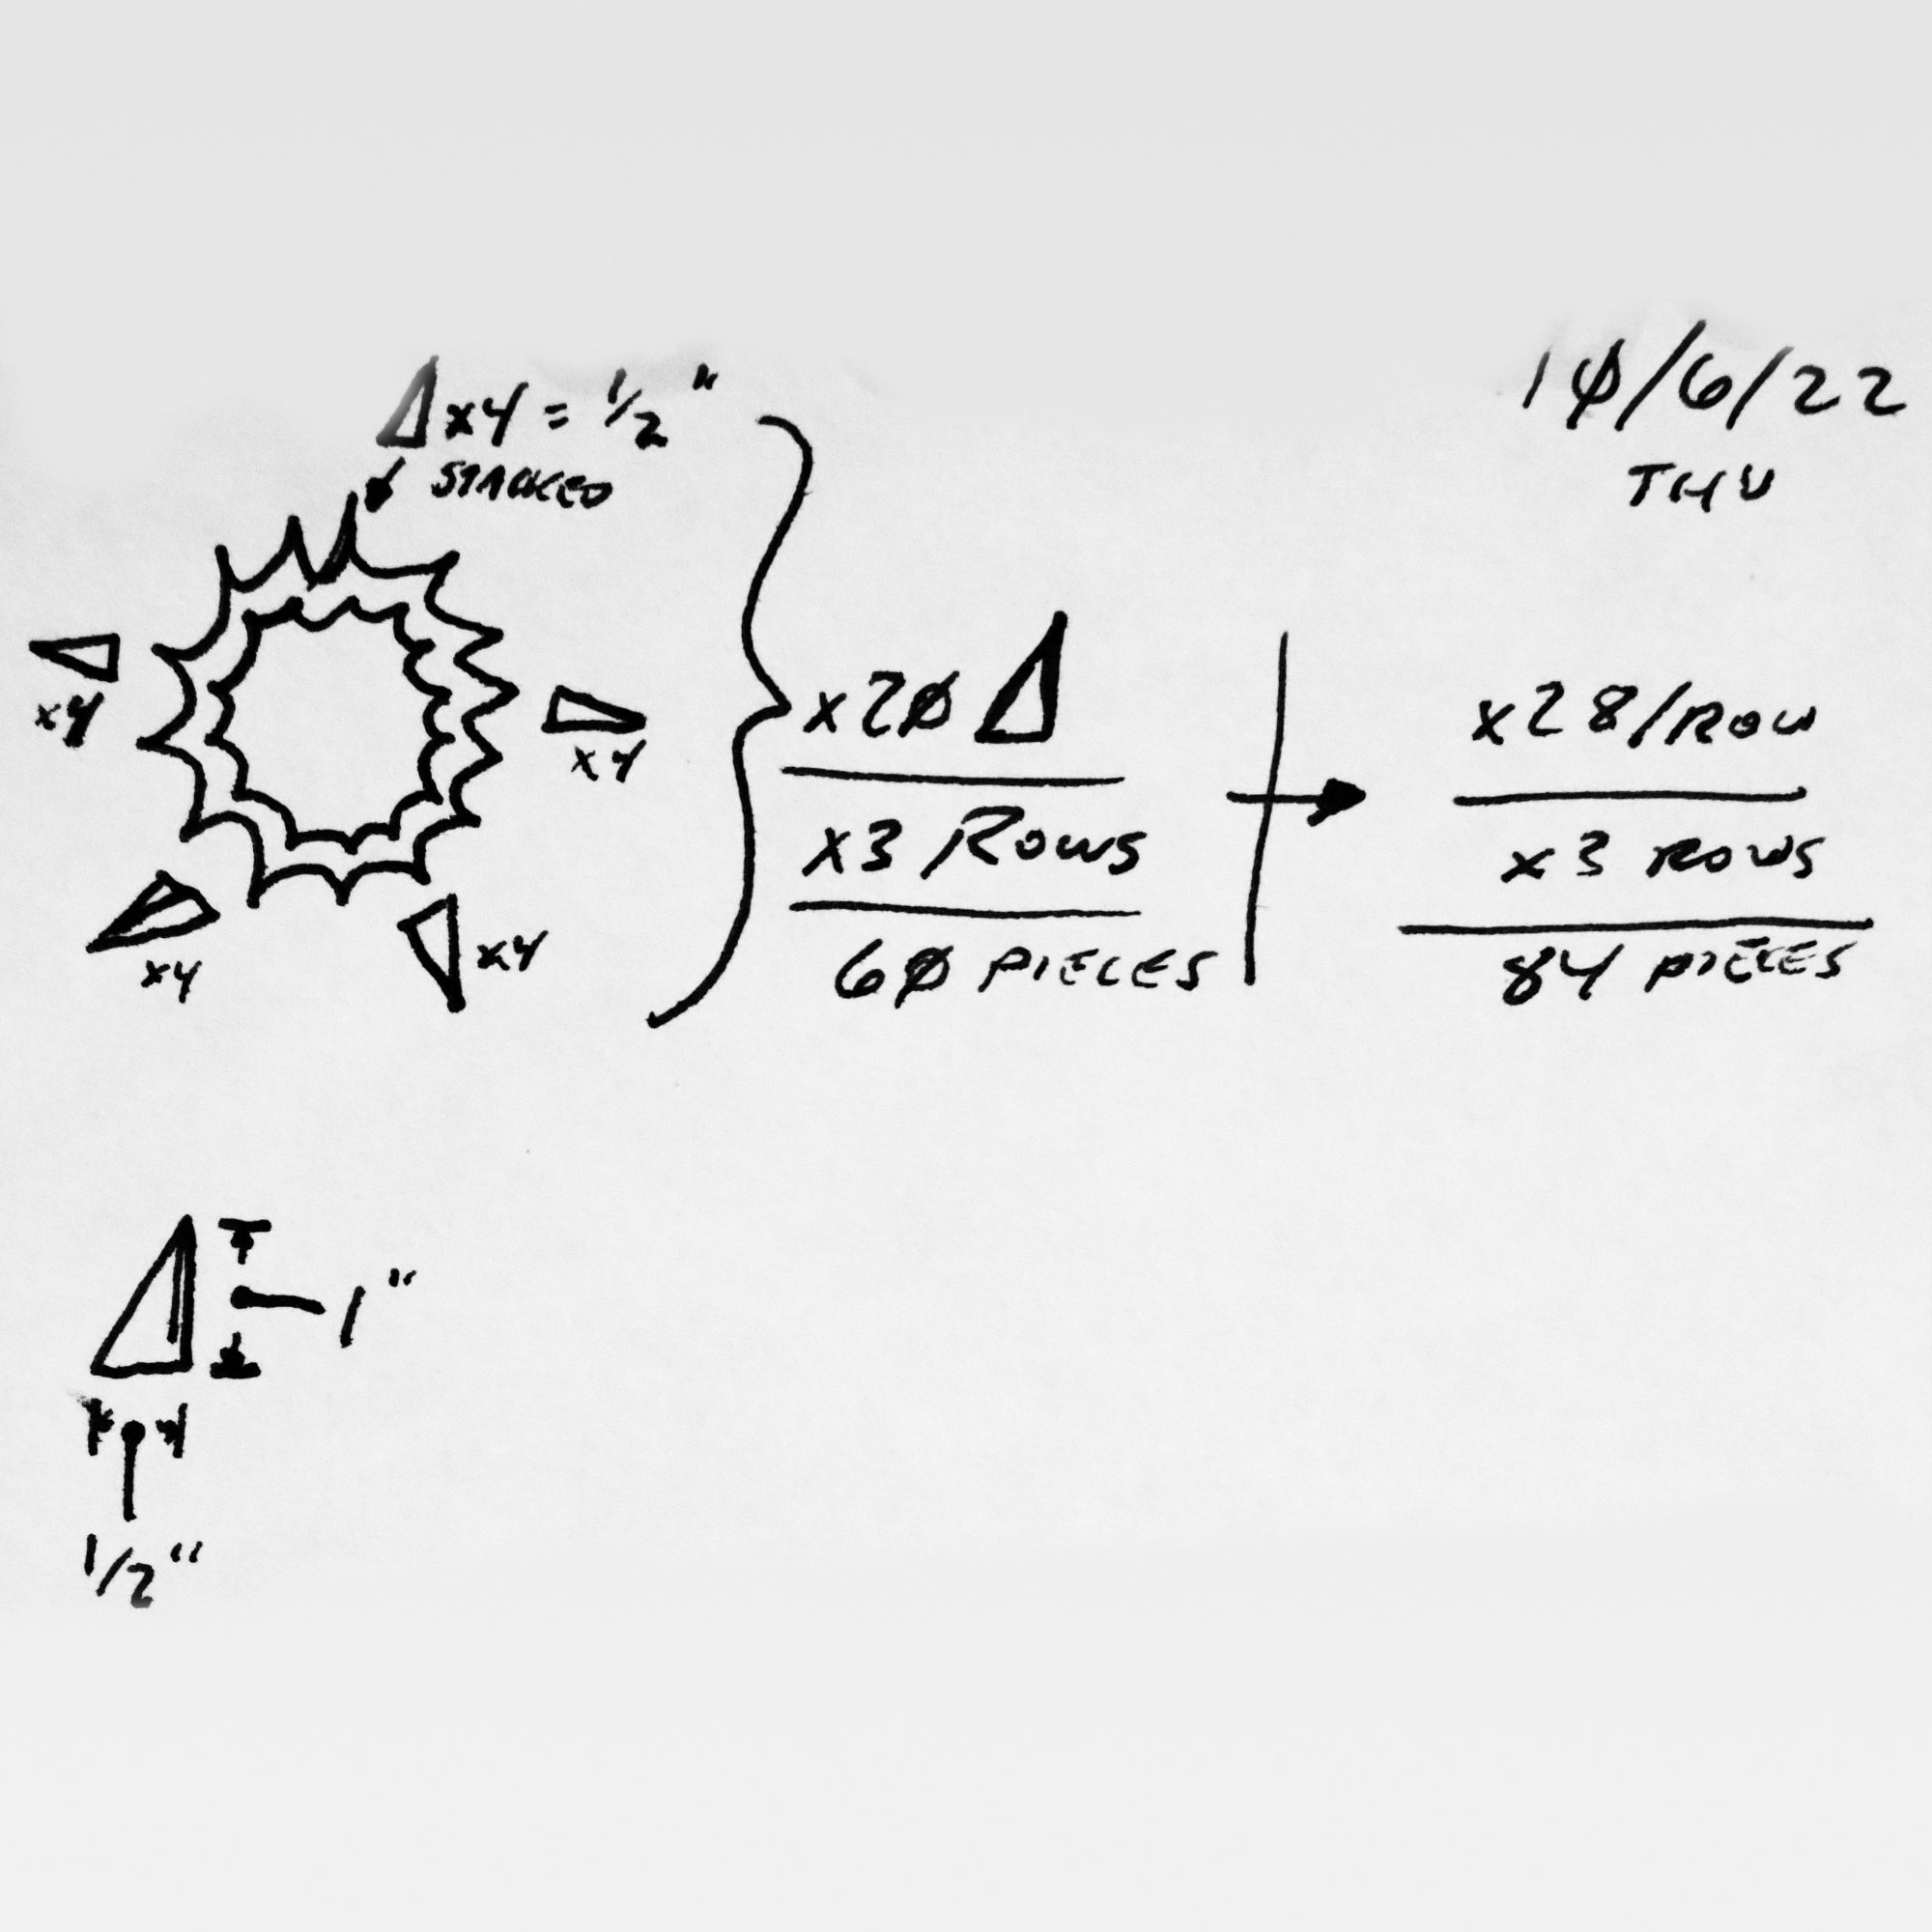 10/6/22
THU
Δx4 = 1/2"
STACKED
x4
x4
x4
x4
x20 Δ
x3 ROWS
60 PIECES
x28/ROW
x3 ROWS
84 PIECES
1"
1/2"